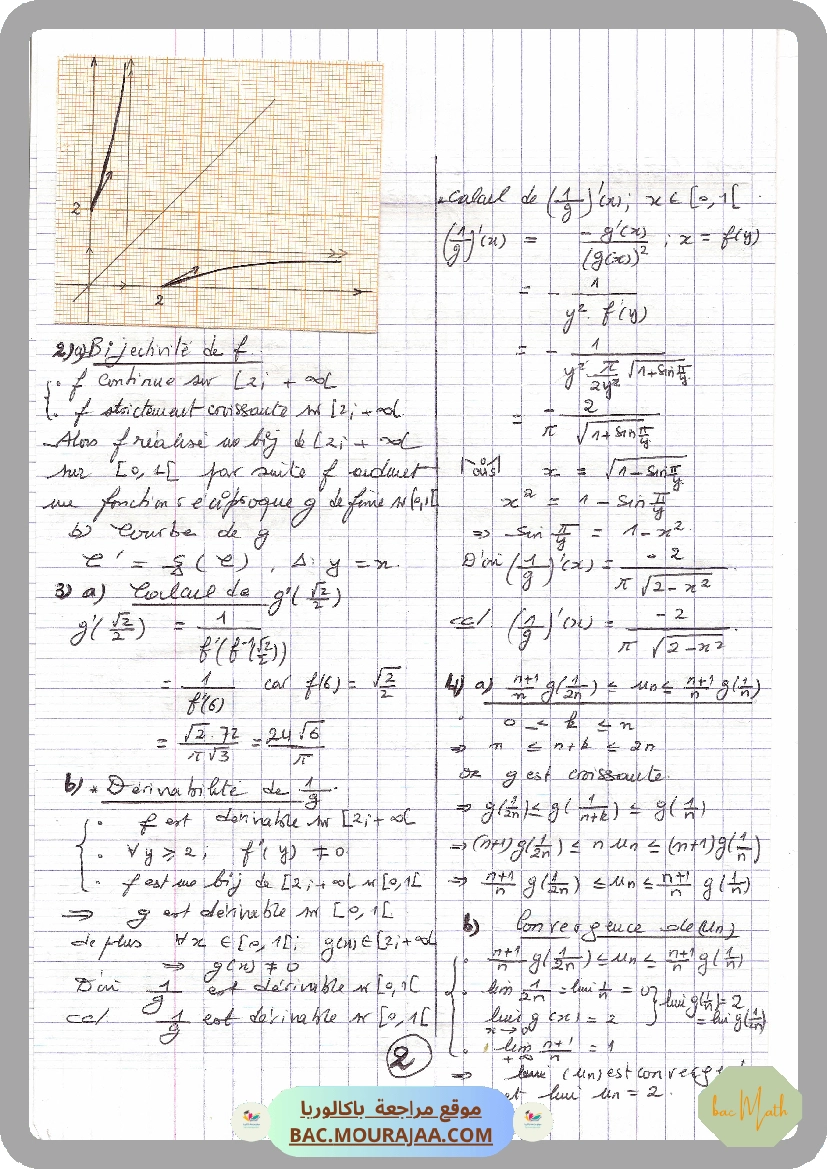 2
2
2) a) Bijectivité de f.
. f continue sur [2; +∞[
. f strictement croissante sr [2; +∞.
Alors f réalise une bij de [2; +∞[
sur [0,1[ par suite f admet
une fonction réciproque g définie sr [0,1[
b) Courbe de g
C' = S_Δ (C), Δ: y = x.
3) a) Calcul de g'(√2/2)
g'(√2/2) = 1/f'(f⁻¹(√2/2))
= 1/f'(6) car f(6) = √2/2
= √2.72/π√3 = 24√6/π
b) * Dérivabilité de 1/g.
. f est dérivable sr [2; +∞[
. ∀y ≥ 2; f'(y) ≠ 0
. f est une bij de [2; +∞[ sr [0,1[
⇒ g est dérivable sr [0,1[
de plus ∀x ∈ [0,1[; g(x) ∈ [2; +∞[
⇒ g(x) ≠ 0
D'où 1/g est dérivable sr [0,1[
ccl 1/g est dérivable sr [0,1[
2
* Calcul de (1/g)'(x); x ∈ [0,1[
(1/g)'(x) = -g'(x)/(g(x))²; x = f(y)
= - 1/(y². f'(y))
= - 1/(y² π/2y² √(1+sin π/y))
= - 2/(π √(1+sin π/y))
Mais x = √(1-sin π/y)
x² = 1 - sin π/y
⇒ sin π/y = 1-x².
D'où (1/g)'(x) = -2/(π √(2-x²))
ccl (1/g)'(x) = -2/(π √(2-x²)).
4) a) n+1/n g(1/2n) ≤ un ≤ n+1/n g(1/n)
. 0 ≤ k ≤ n
⇒ n ≤ n+k ≤ 2n
or g est croissante.
⇒ g(1/2n) ≤ g(1/n+k) ≤ g(1/n)
⇒ (n+1)g(1/2n) ≤ n un ≤ (n+1)g(1/n)
⇒ n+1/n g(1/2n) ≤ un ≤ n+1/n g(1/n)
b) Convergence de (un)
. n+1/n g(1/2n) ≤ un ≤ n+1/n g(1/n)
. lim 1/2n = lim 1/n = 0 } lim g(1/n) = 2
lim x→0 g(x) = 2 = lim g(1/2n)
. lim +∞ n+1/n = 1
⇒ (un) est converge
et lim un = 2.
bac Math
موقع مراجعة باكالوريا
BAC.MOURAJAA.COM